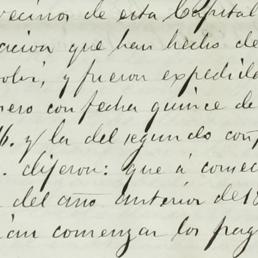 vecinos de esta Capital
acion que han hecho de
y fueron expedid
ero con fecha quince de
6. y la del segundo con
. dijeron: que á comen
del año anterior de 18
án comenzar los pag